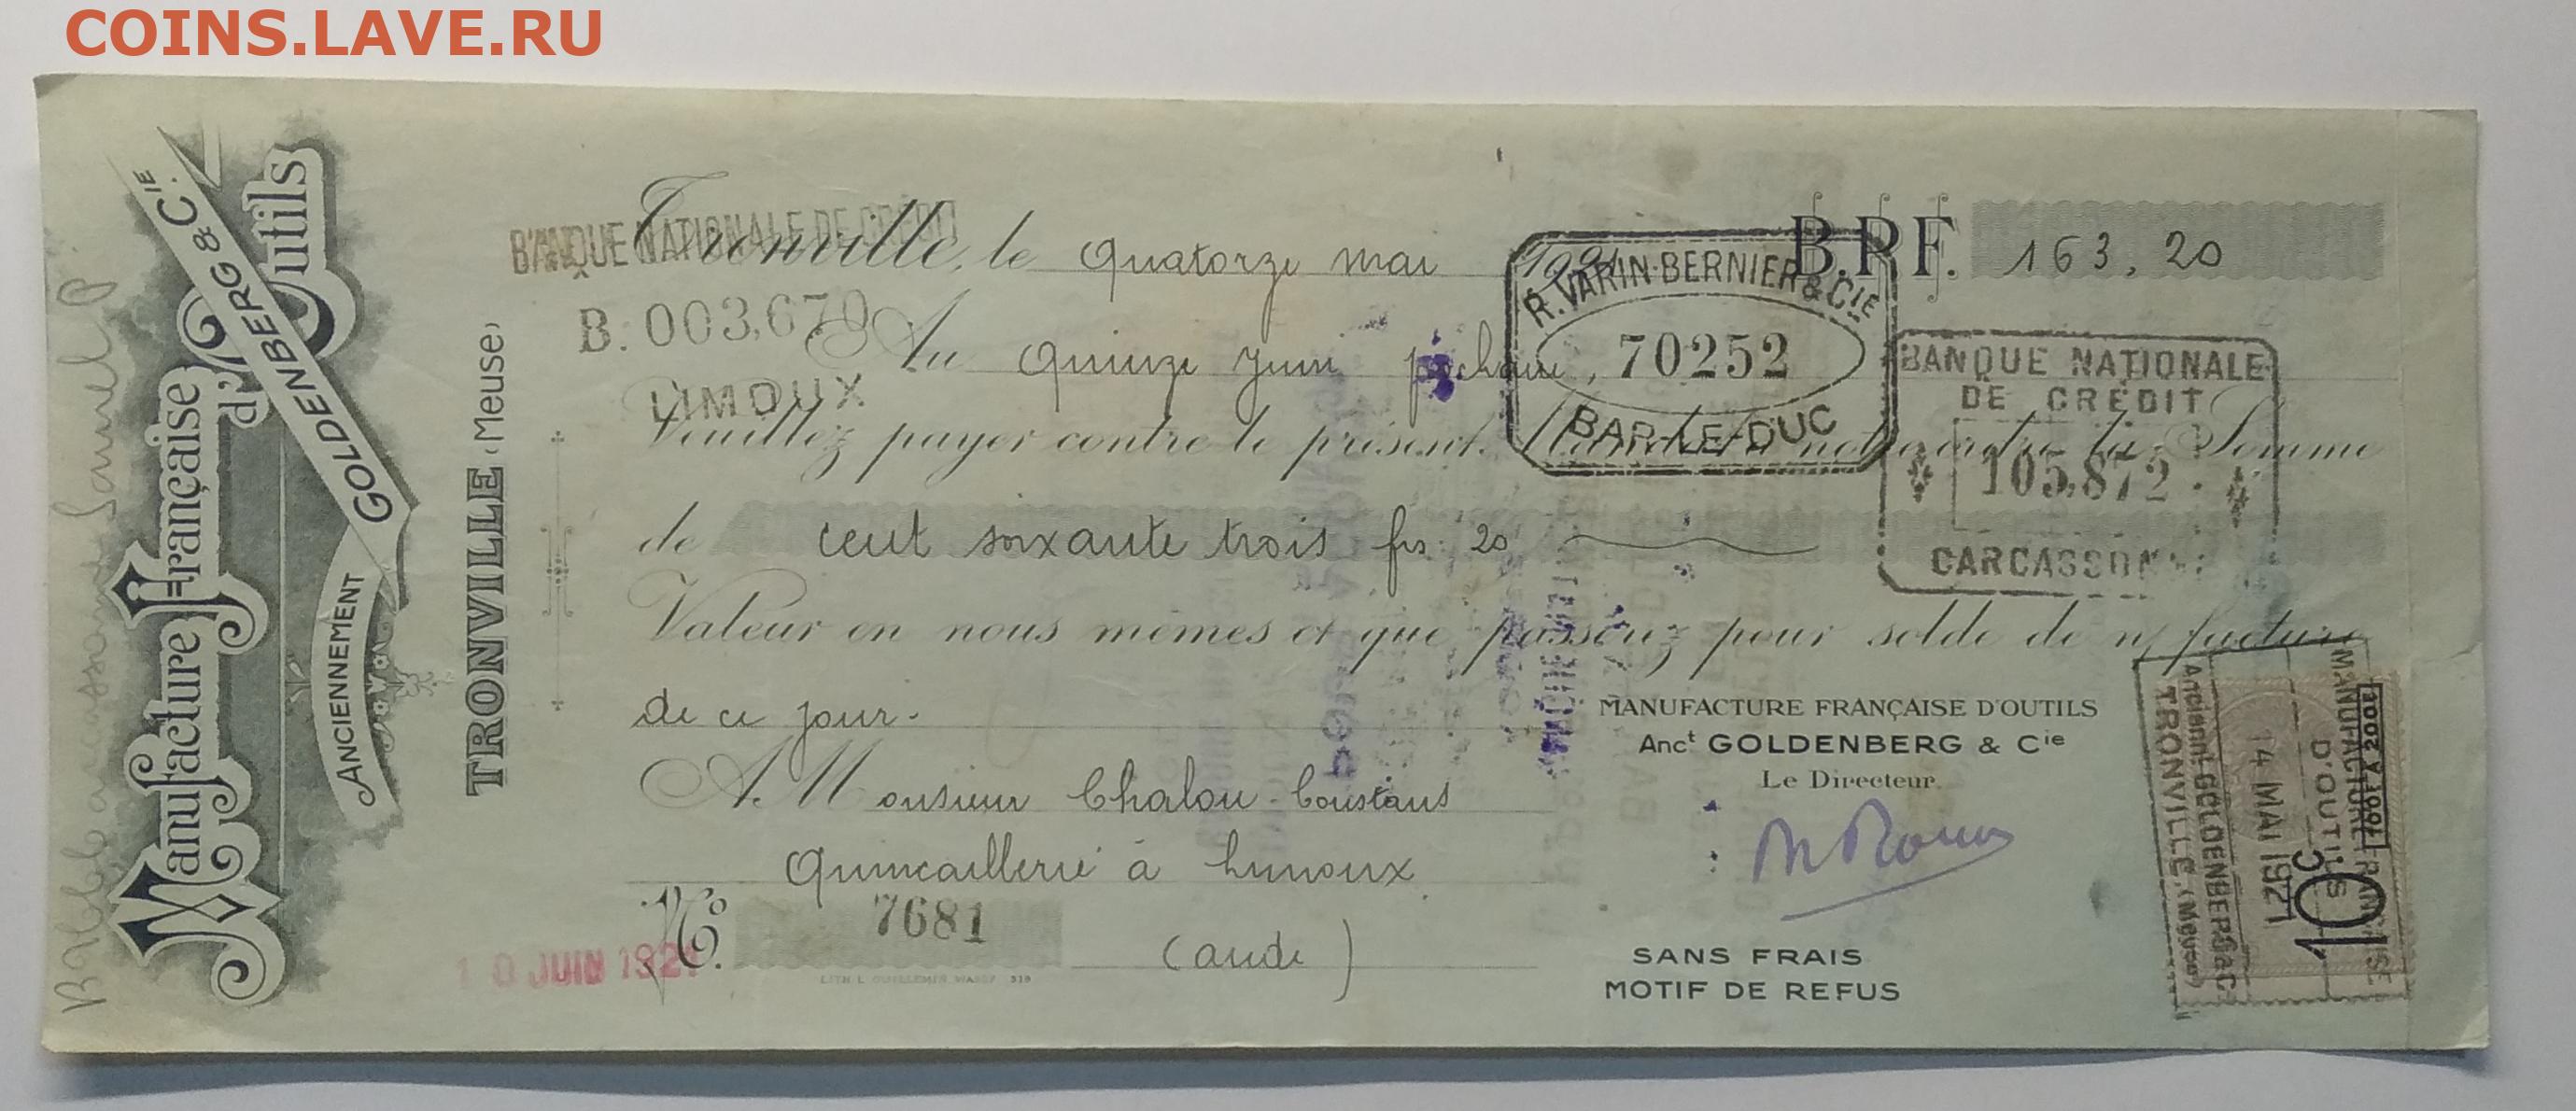 COINS.LAVE.RU
Manufacture Française
d'Outils
ANCIENNEMENT GOLDENBERG & CIE
TRONVILLE (Meuse)
BANQUE NATIONALE DE CREDIT
B. 003,670
LIMOUX
Tronville, le Quatorze mai 1921
B.P.F. 163,20
Au Quinze Juin prochain,
R. VARIN-BERNIER & CIE
70252
BAR-LE-DUC
BANQUE NATIONALE
DE CREDIT
105,872
CARCASSONNE
Veuillez payer contre le présent Mandat à notre ordre la Somme
de cent soixante trois frs 20
Valeur en nous mêmes et que passerez pour solde de n/ facture
de ce jour.
A. Monsieur Chalou-Coustans
Quincaillerie à Limoux
(Aude)
No. 7681
10 JUIN 1921
MANUFACTURE FRANÇAISE D'OUTILS
Anct GOLDENBERG & Cie
Le Directeur
SANS FRAIS
MOTIF DE REFUS
MANUFACTURE FRANÇAISE
D'OUTILS
14 MAI 1921
Ancienn^t GOLDENBERG & C
TRONVILLE (Meuse)
100F À 200F
10c